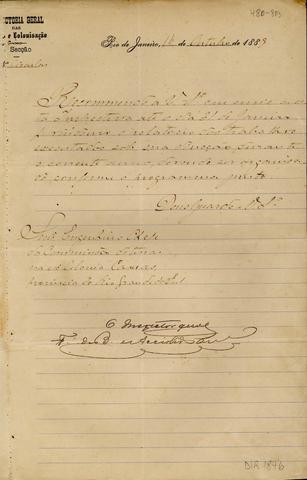 480-803
CTORIA GERAL
DAS
e Colonisação
Secção
Rio de Janeiro, 16 de Outubro de 1888
Recommendo a V. Sª que envie a es-
ta Inspectoria até o dia 31 de Janeiro
o relatorio dos trabalhos
executados sob sua direcção durante
o corrente anno, devendo ser organisa-
do conforme o programma junto.
Deus Guarde a V. Sª
Snr. Engenheiro Chefe
da Commissão de terras
na ex-Colonia Caxias,
provincia do Rio Grande do Sul
O Inspector geral
F. de B. e Accioli de
DIR 1846